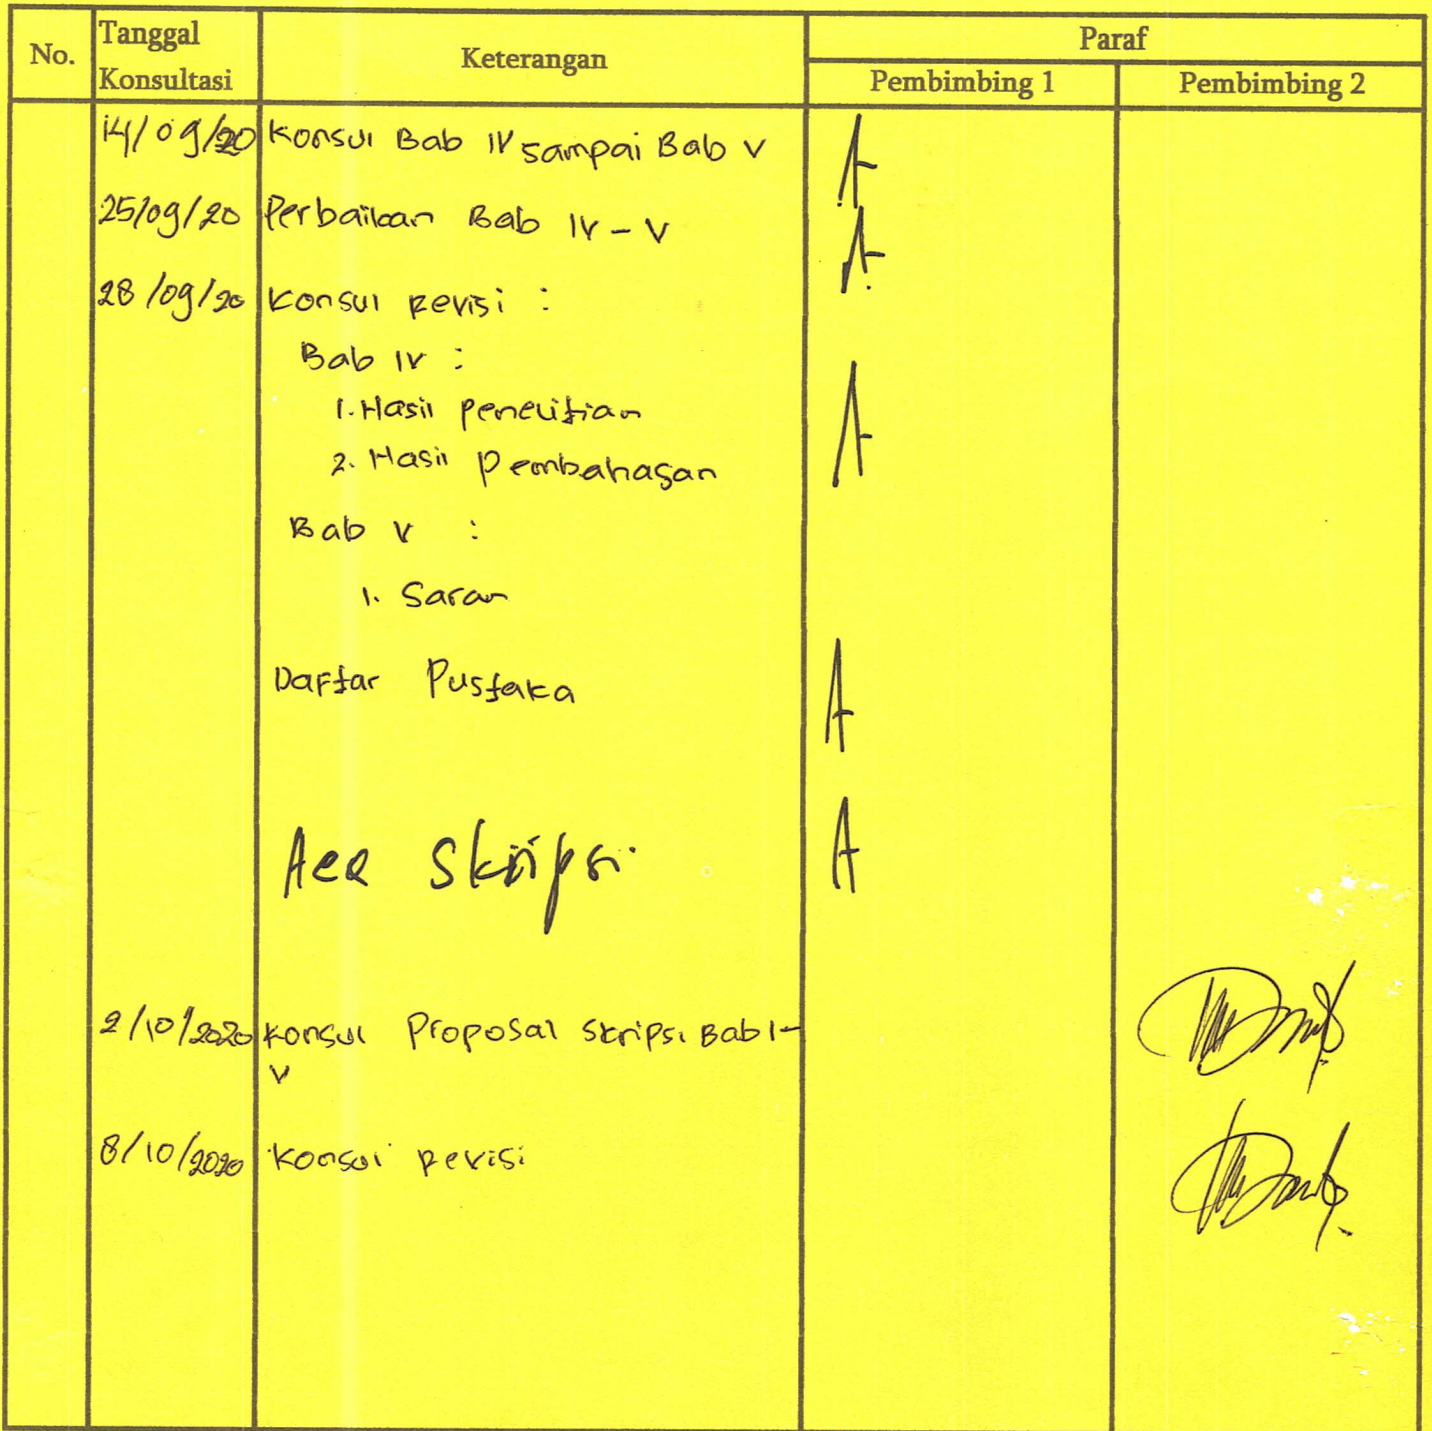 No. Tanggal Konsultasi Keterangan Paraf
Pembimbing 1 Pembimbing 2
14/09/20 Konsul Bab IV sampai Bab V
25/09/20 Perbaikan Bab IV - V
28/09/20 Konsul Revisi :
Bab IV :
1. Hasil Penelitian
2. Hasil Pembahasan
Bab V :
1. Saran
Daftar Pustaka
Acc Skripsi
2/10/2020 Konsul Proposal Skripsi Bab I -
V
8/10/2020 Konsul Revisi